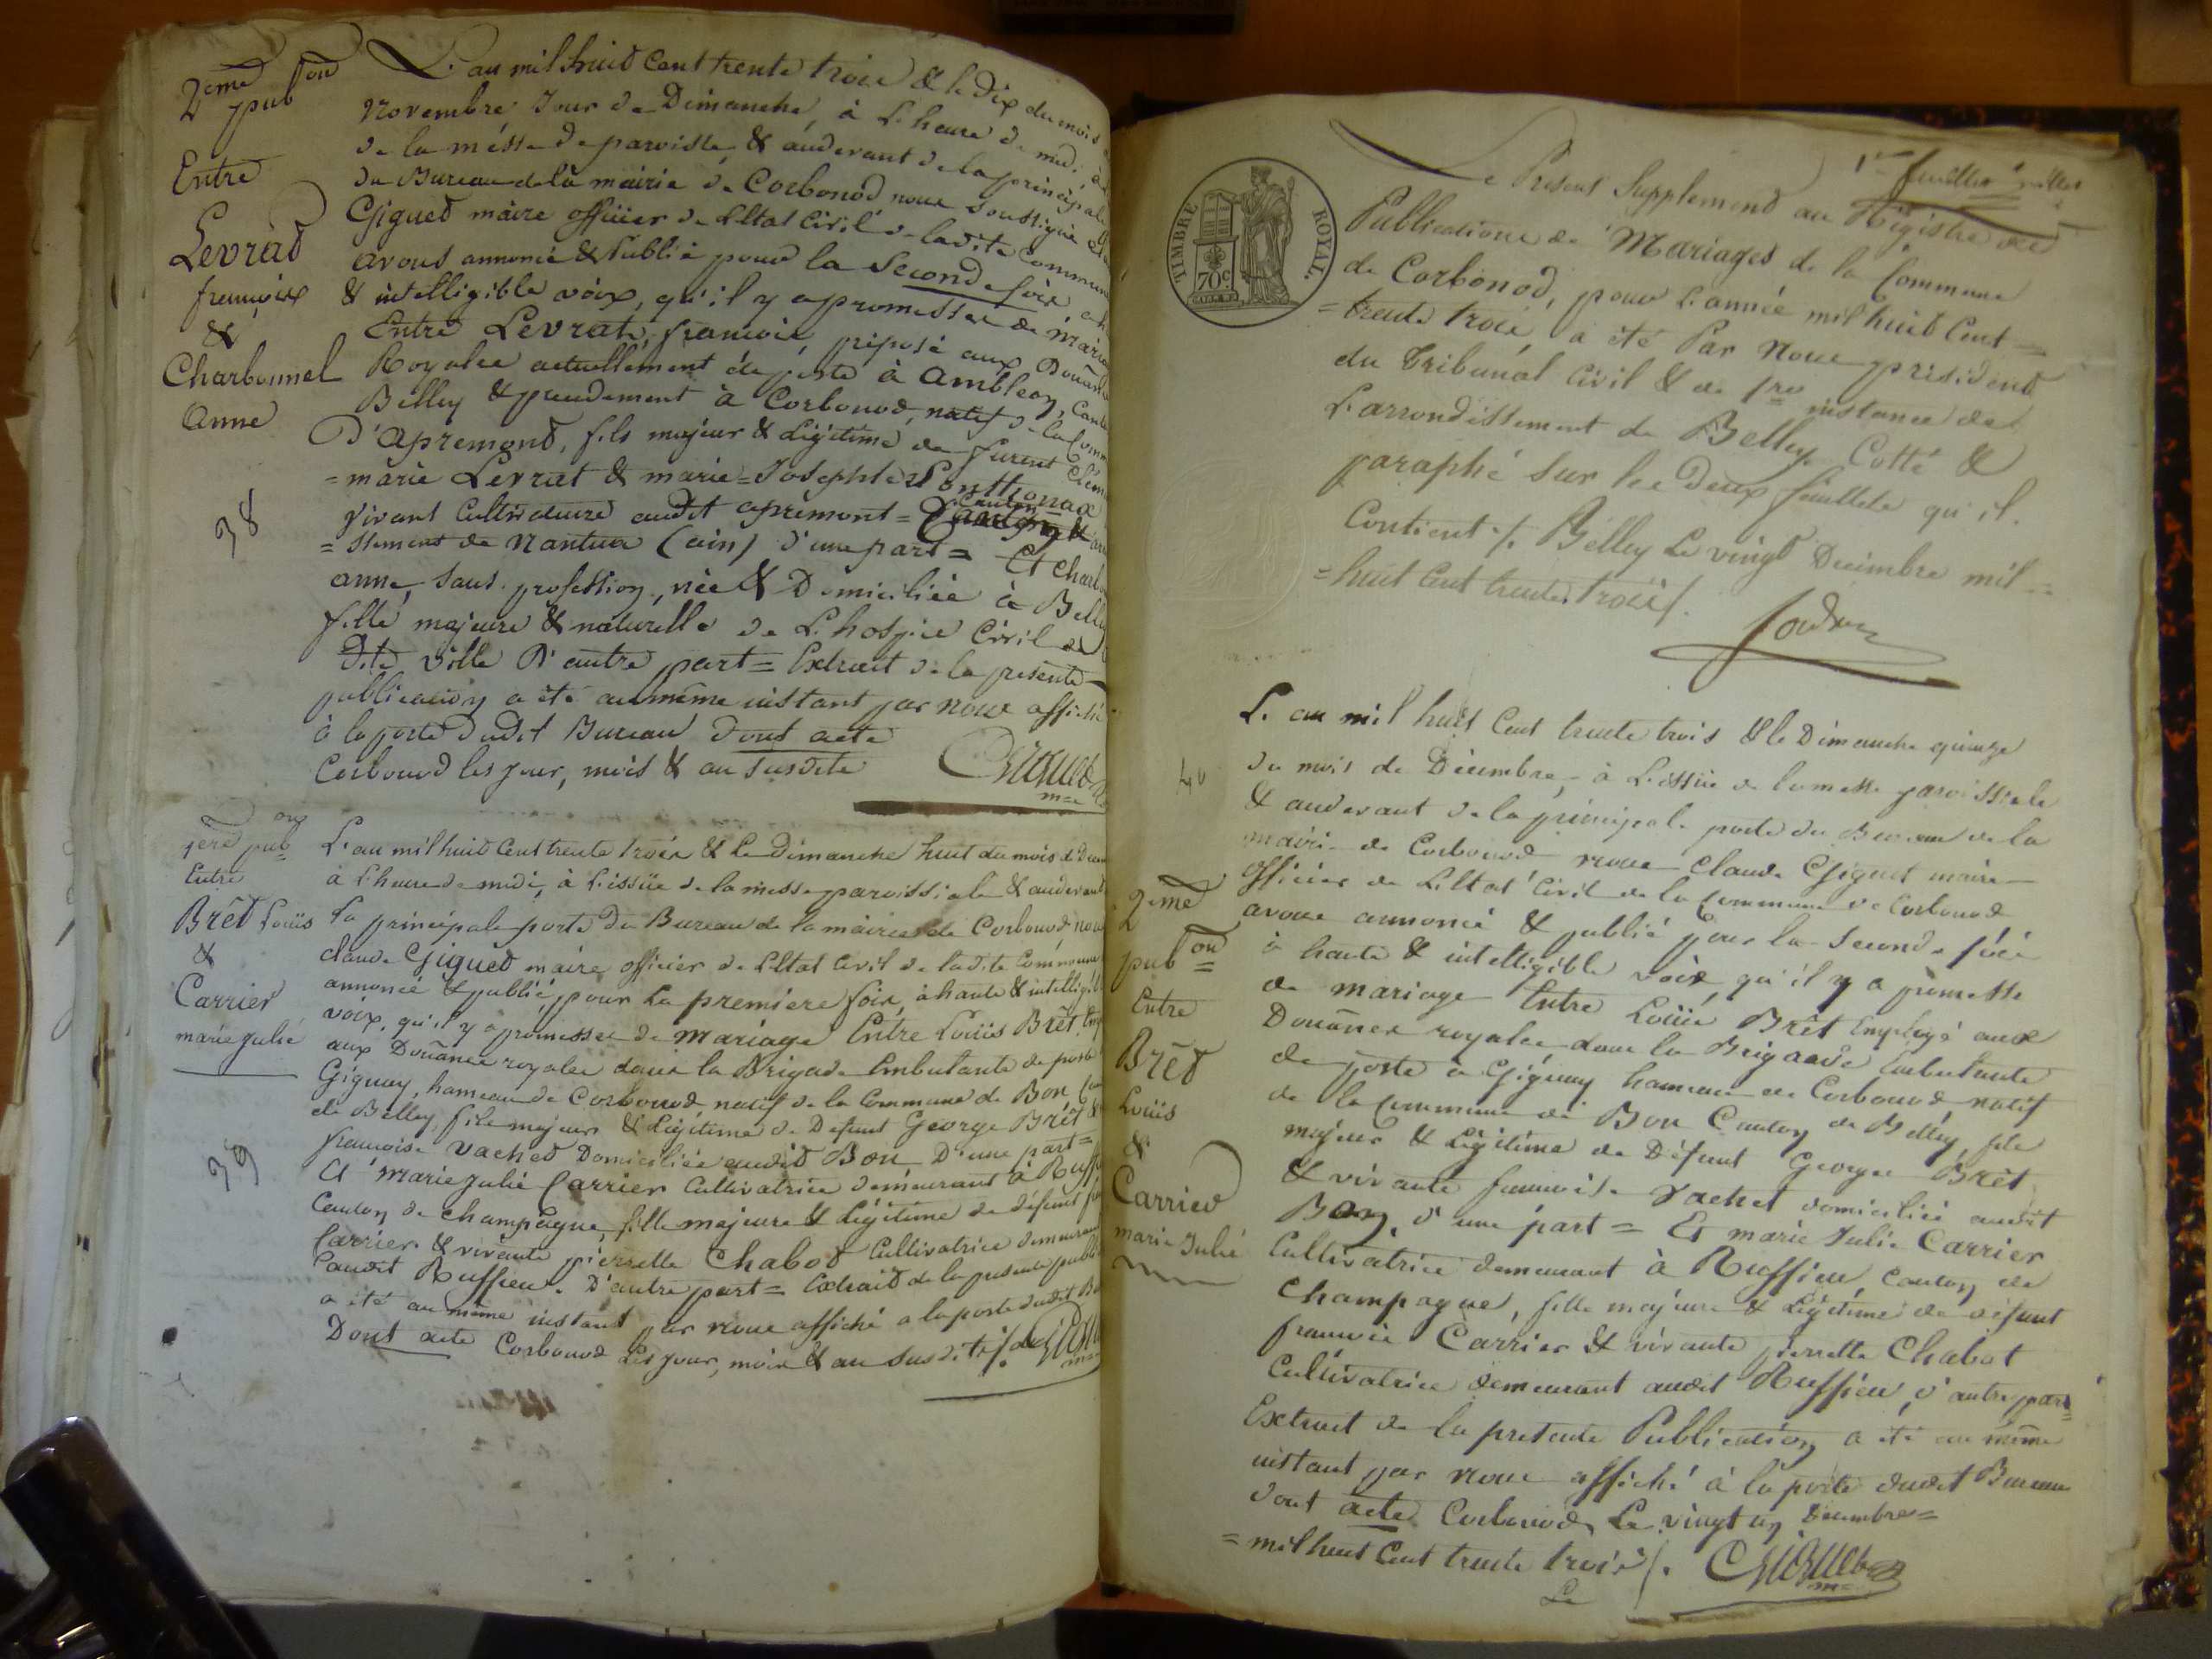 2eme pubon
Entre
Levrat
françois
&
Charbonnel
Anne
38
L'an mil huit cent trente trois & le dix du mois
Novembre, Jour de Dimanche, à L'heure de midi,
de la messe de paroisse, & audevant de la principale
du Bureau de la mairie de Corbonod nous soussigné
Giguet maire officier de L'Etat Civil de ladite Commune
avons annoncé & Publié pour la Seconde fois
& intelligible voix, qu'il y a promesses de maria
Entre Levrat, françois, préposé aux Douanes
Royales actuellement de poste à Ambleon, Canton
Belley & précedemment à Corbonod, natif de la Comm
D'Apremont, fils majeur & Légitime de furent Clém
=marie Levrat & marie=Josephte Ponthonax
vivant Cultivateurs audit apremont= Canton
=ssement de Nantua (ain) d'une part= Et Charb
anne, sans profession, née & Domiciliée à Belley
fille majeure & naturelle de L'hospice Civil de
dite ville D'autre part= Extrait de la présente
publication a été au même instant par nous affiché
à la porte dudit Bureau dont acte
Corbonod les jour, mois & an susdits
Giguet
1ere pubon
Entre
Brêt Louis
&
Carrier
marie julie
39
L'an mil huit Cent trente trois & Le Dimanche huit du mois de Décem
à L'heure de midi, à L'issüe de la messe paroissiale & audevant
la principale porte du Bureau de la mairie de Corbonod nous
Claude Giguet maire officier de L'Etat Civil de ladite Commune
annoncé & publié, pour La premiere fois, à haute & intelligib
voix, qu'il y a promesses de mariage Entre Louis Brêt, Emp
aux Douânes royales dans la Brigade Embutante de poste
Gignay, hameau de Corbonod natif de la Commune de Bon,
de Belley, fils majeur & Légitime de Défunt George Brêt &
françoise Vachet Domiciliée audit Bon D'une part=
Et marie julie Carrier Cultivatrice demeurant à Ruff
Canton de Champagne, fille majeure & Légitime de défunt
Carrier & vivante pierrette Chabot Cultivatrice demeurant
audit Ruffieu. D'autre part= Extrait de la présente publi
a été au même instant par nous affiché a la porte dudit B
Dont acte Corbonod Les jour, mois & an susdits/.
TIMBRE ROYAL.
70c
1er feuillet
Le Présent Supplement au Régistre des
Publications de Mariages de la Commune
de Corbonod, pour L'année mil huit Cent=
=trente trois, a été Par Nous président
du Tribunal Civil & de 1re instance de
L'arrondissement de Belley Cotté &
paraphé sur les Deux feuillets qu'il
Contient /. Belley Le vingt Decembre mil=
=huit Cent trente trois/.
40
2eme
pubon
Entre
Brêt
Louis
&
Carrier
marie Julie
L'an mil huit Cent trente trois & le Dimanche quinze
du mois de Décembre, à L'issüe de la messe paroissiale
& audevant de la principale porte du Bureau de la
mairie de Corbonod nous Claude Giguet maire
Officier de L'Etat Civil de la Commune de Corbonod
avons annoncé & publié pour la seconde fois
à haute & intelligible voix, qu'il y a promesse
de mariage Entre Louis Brêt Employé aux
Douânes royales dans la Brigade Embutante
de poste a Gignay hameau de Corbonod natif
de la Commune de Bon Canton de Belley, fils
majeur & Légitime de Défunt George Brêt
& vivante françoise Vachet domiciliée audit
Bon, d'une part= Et marie Julie Carrier
Cultivatrice demeurant à Ruffieu, Canton de
Champagne, fille majeure & Légitime de défunt
françois Carrier & vivante pierrette Chabot
Cultivatrice demeurant audit Ruffieu, d'autre part=
Extrait de la présente Publication a été au même
instant par nous affiché à la porte dudit Bureau
dont acte Corbonod, Le vingt un Décembre=
=mil huit Cent trente trois/. Giguet
Le